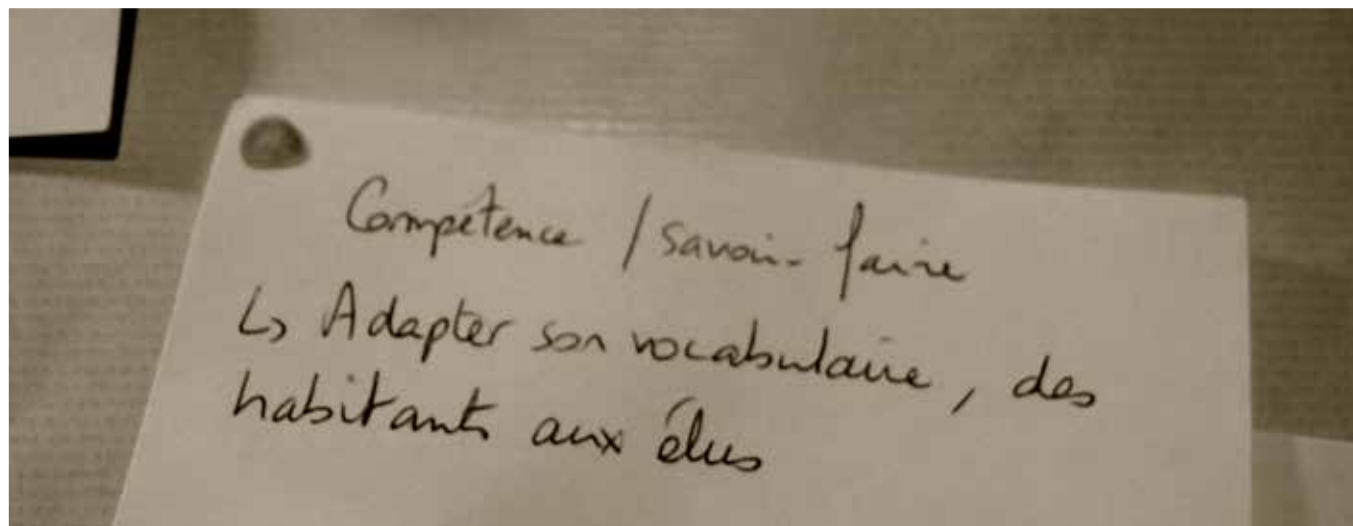 Compétence / savoir-faire
↳ Adapter son vocabulaire, des
habitants aux élus